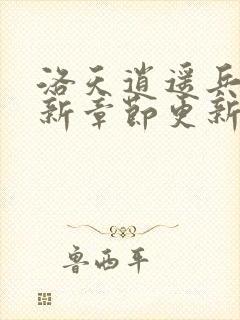 洛天逍遥兵
新章节更新
鲁西平